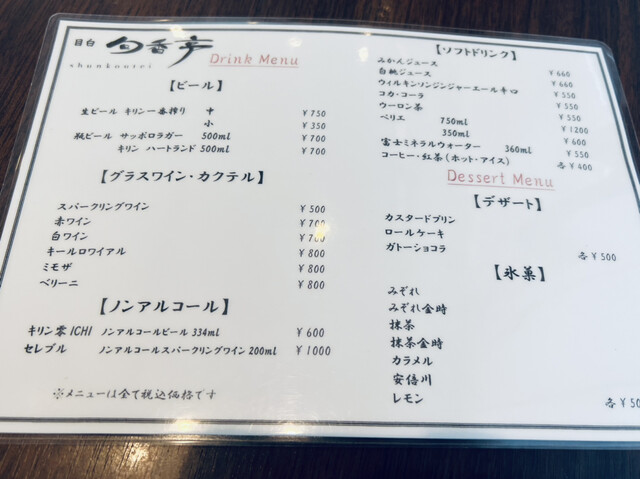 目白 旬香亭
shunkoutei
Drink Menu
【ビール】
生ビール キリン一番搾り 中 ¥750
小 ¥350
瓶ビール サッポロラガー 500ml ¥700
キリン ハートランド 500ml ¥700
【グラスワイン・カクテル】
スパークリングワイン ¥500
赤ワイン ¥700
白ワイン ¥700
キールロワイアル ¥800
ミモザ ¥800
ベリーニ ¥800
【ノンアルコール】
キリン零ICHI ノンアルコールビール 334ml ¥600
セレブル ノンアルコールスパークリングワイン 200ml ¥1000
※メニューは全て税込価格です
【ソフトドリンク】
みかんジュース ¥660
白桃ジュース ¥660
ウィルキンソンジンジャーエール辛口 ¥550
コカ・コーラ ¥550
ウーロン茶 ¥550
ペリエ 750ml ¥1200
350ml ¥600
富士ミネラルウォーター 360ml ¥550
コーヒー・紅茶(ホット・アイス) 各¥400
Dessert Menu
【デザート】
カスタードプリン
ロールケーキ
ガトーショコラ 各¥500
【氷菓】
みぞれ
みぞれ金時
抹茶
抹茶金時
カラメル
安倍川
レモン 各¥50